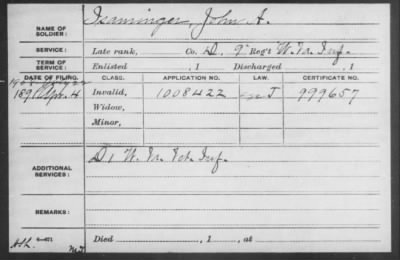 NAME OF SOLDIER: Isaminger, John A.
SERVICE: Late rank, Co. D, 9" Reg't W. Va. Inf.
TERM OF SERVICE: Enlisted , 1 Discharged , 1
DATE OF FILING. CLASS. APPLICATION NO. LAW. CERTIFICATE NO.
189 Apr. 4 Invalid, 1008422 J 999657
Widow,
Minor,
ADDITIONAL SERVICES: D, 1 W. Va. Vet. Inf.
REMARKS:
Died , 1 , at